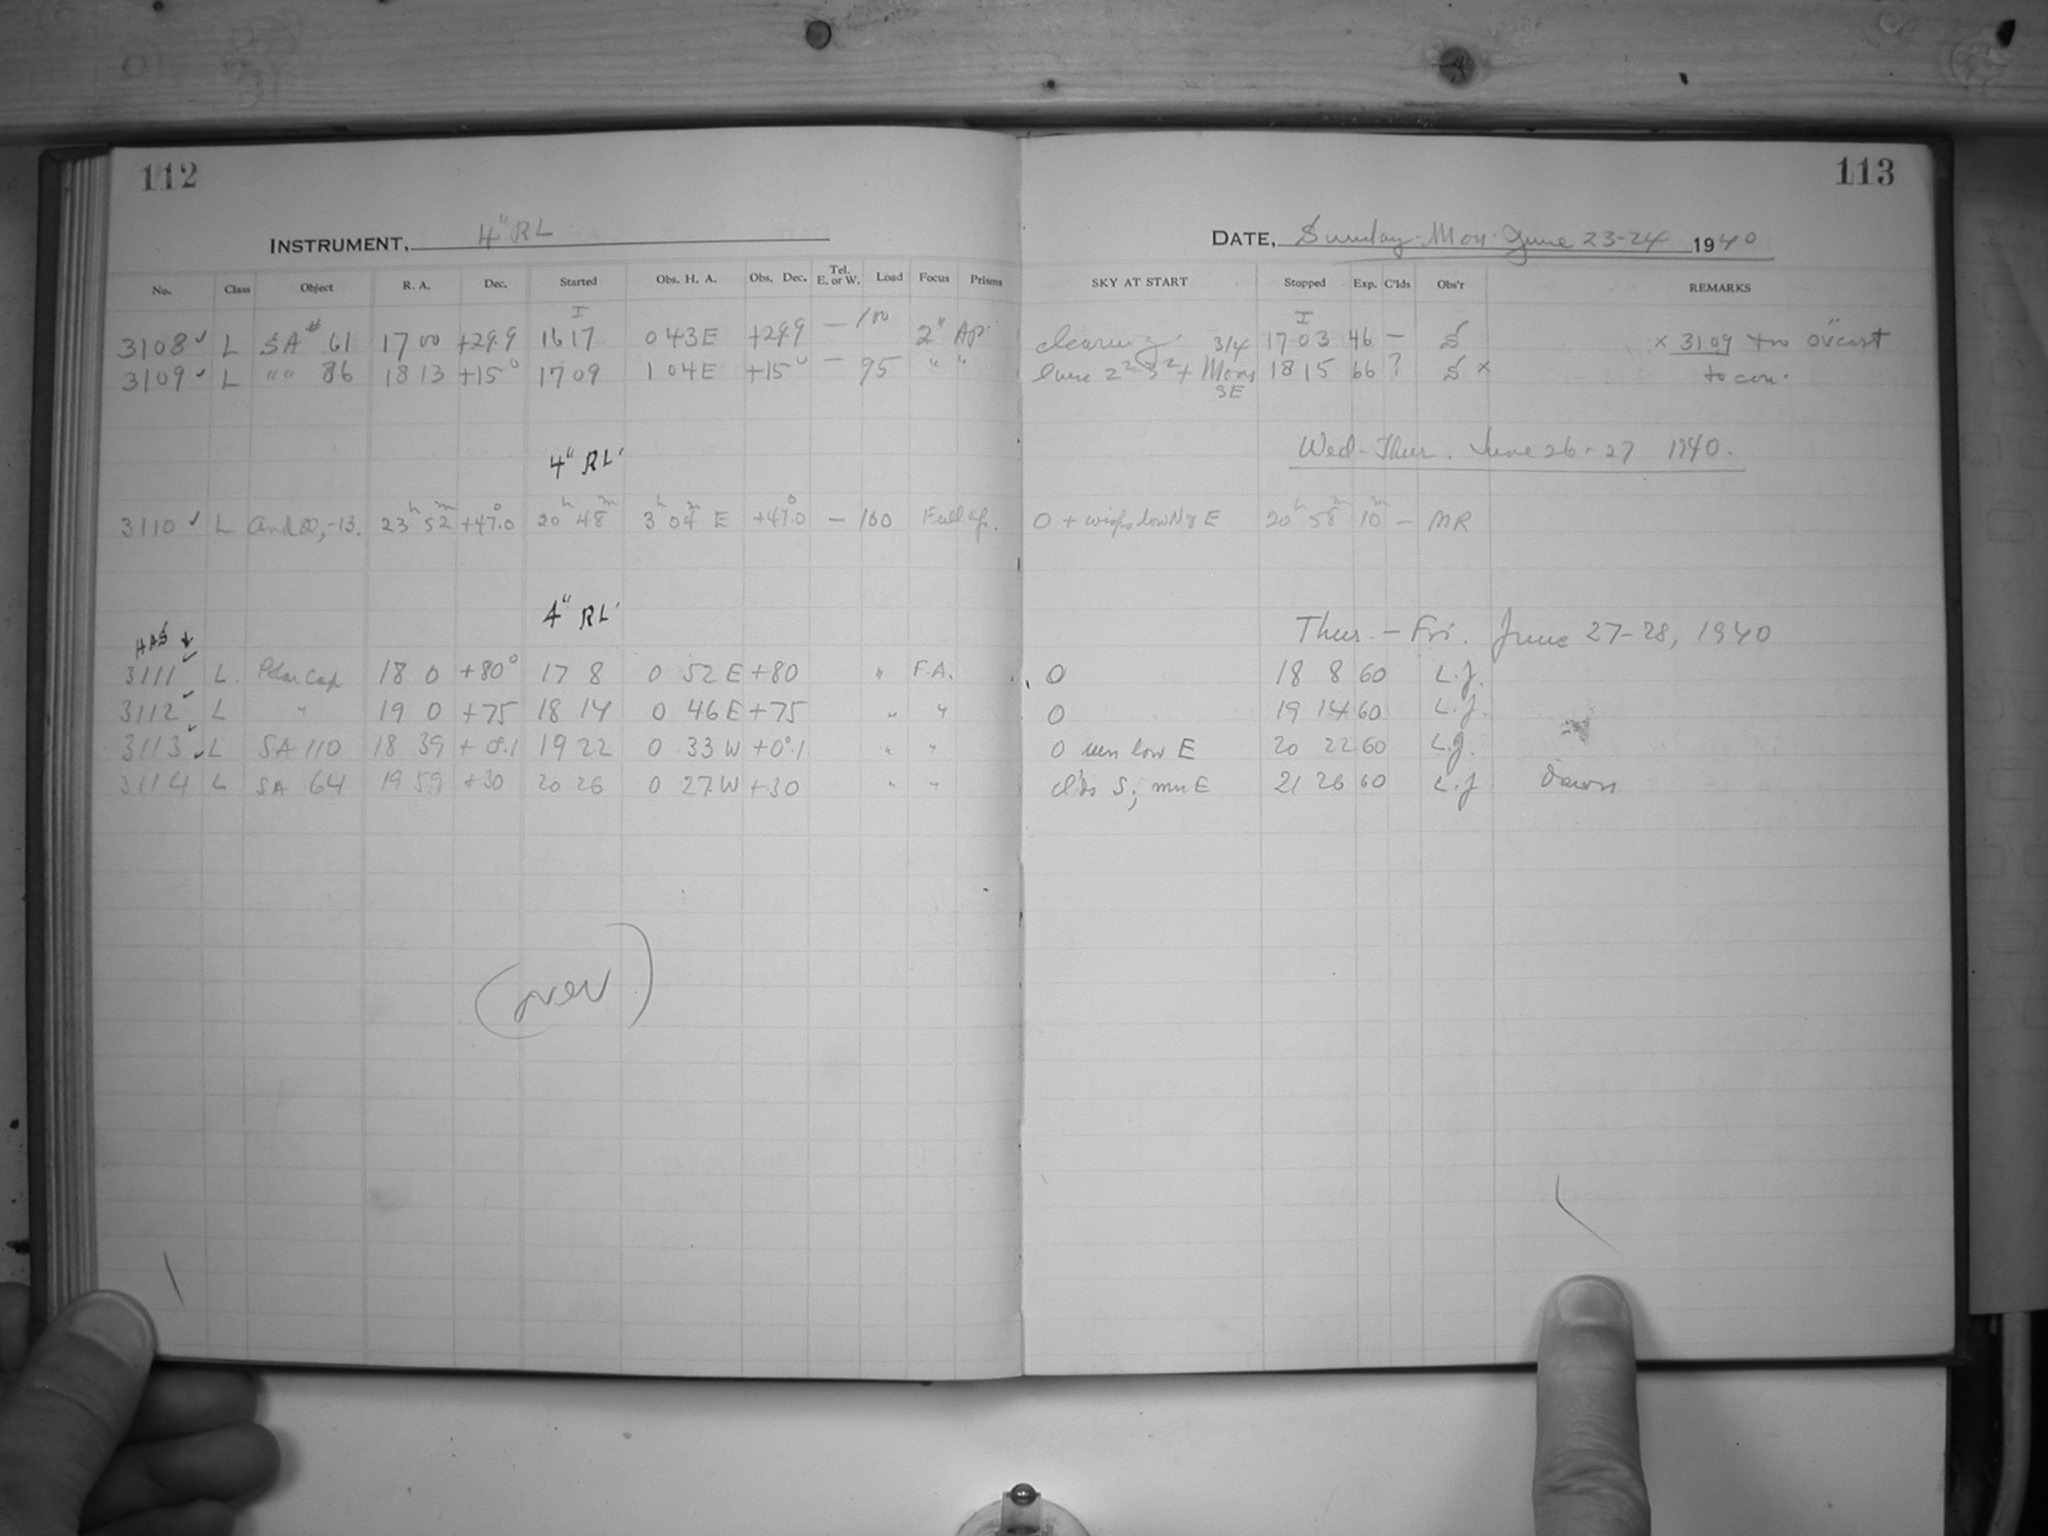 112
113
INSTRUMENT, 4" RL
DATE, Sunday-Mon. June 23-24 1940
No. Class Object R. A. Dec. Started Obs. H. A. Obs. Dec. Tel. E. or W. Load Focus Prisms SKY AT START Stopped Exp. C'lds Obs'r REMARKS
I I
3108 ✓ L SA # 61 17 00 +29.9 16 17 0 43 E +29.9 — 100 2" Ap. clearing 3/4 17 03 46 — S × 3109 overcast
3109 ✓ L " " 86 18 13 +15° 17 09 1 04 E +15° — 95 " " + Moon SE 18 15 66 ? S × to con.
4" RL Wed-Thur. June 26-27 1940.
3110 ✓ L 23h 52m +47.0° 20h 48m 3h 04m E +47.0° — 100 Full ap. 0 + wisps low N & E 20h 58m 10m — MR
4" RL Thur. — Fri. June 27-28, 1940
HAS ↓
3111 ✓ L. Polar Cap 18 0 +80° 17 8 0 52 E +80 " F.A. 0 18 8 60 L.J.
3112 ✓ L " 19 0 +75 18 14 0 46 E +75 " " 0 19 14 60 L.J.
3113 ✓ L SA 110 18 39 +0°.1 19 22 0 33 W +0°.1 " " 0 low E 20 22 60 L.J.
3114 L SA 64 19 59 +30 20 26 0 27 W +30 " " cl'ds S; mn E 21 26 60 L.J Dawn
(over)